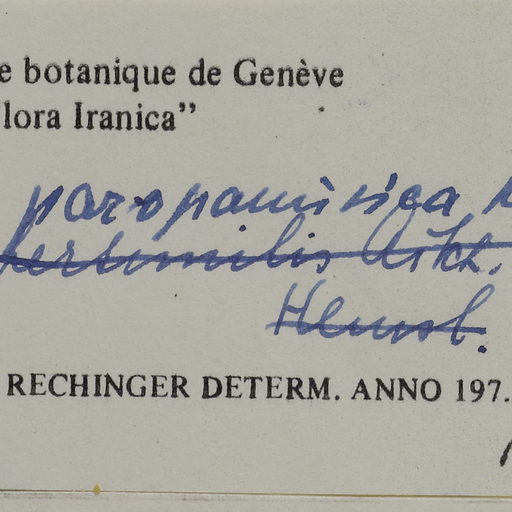 e botanique de Genève
lora Iranica”
paropamisica
Aitch.
Hemsl.
RECHINGER DETERM. ANNO 197.